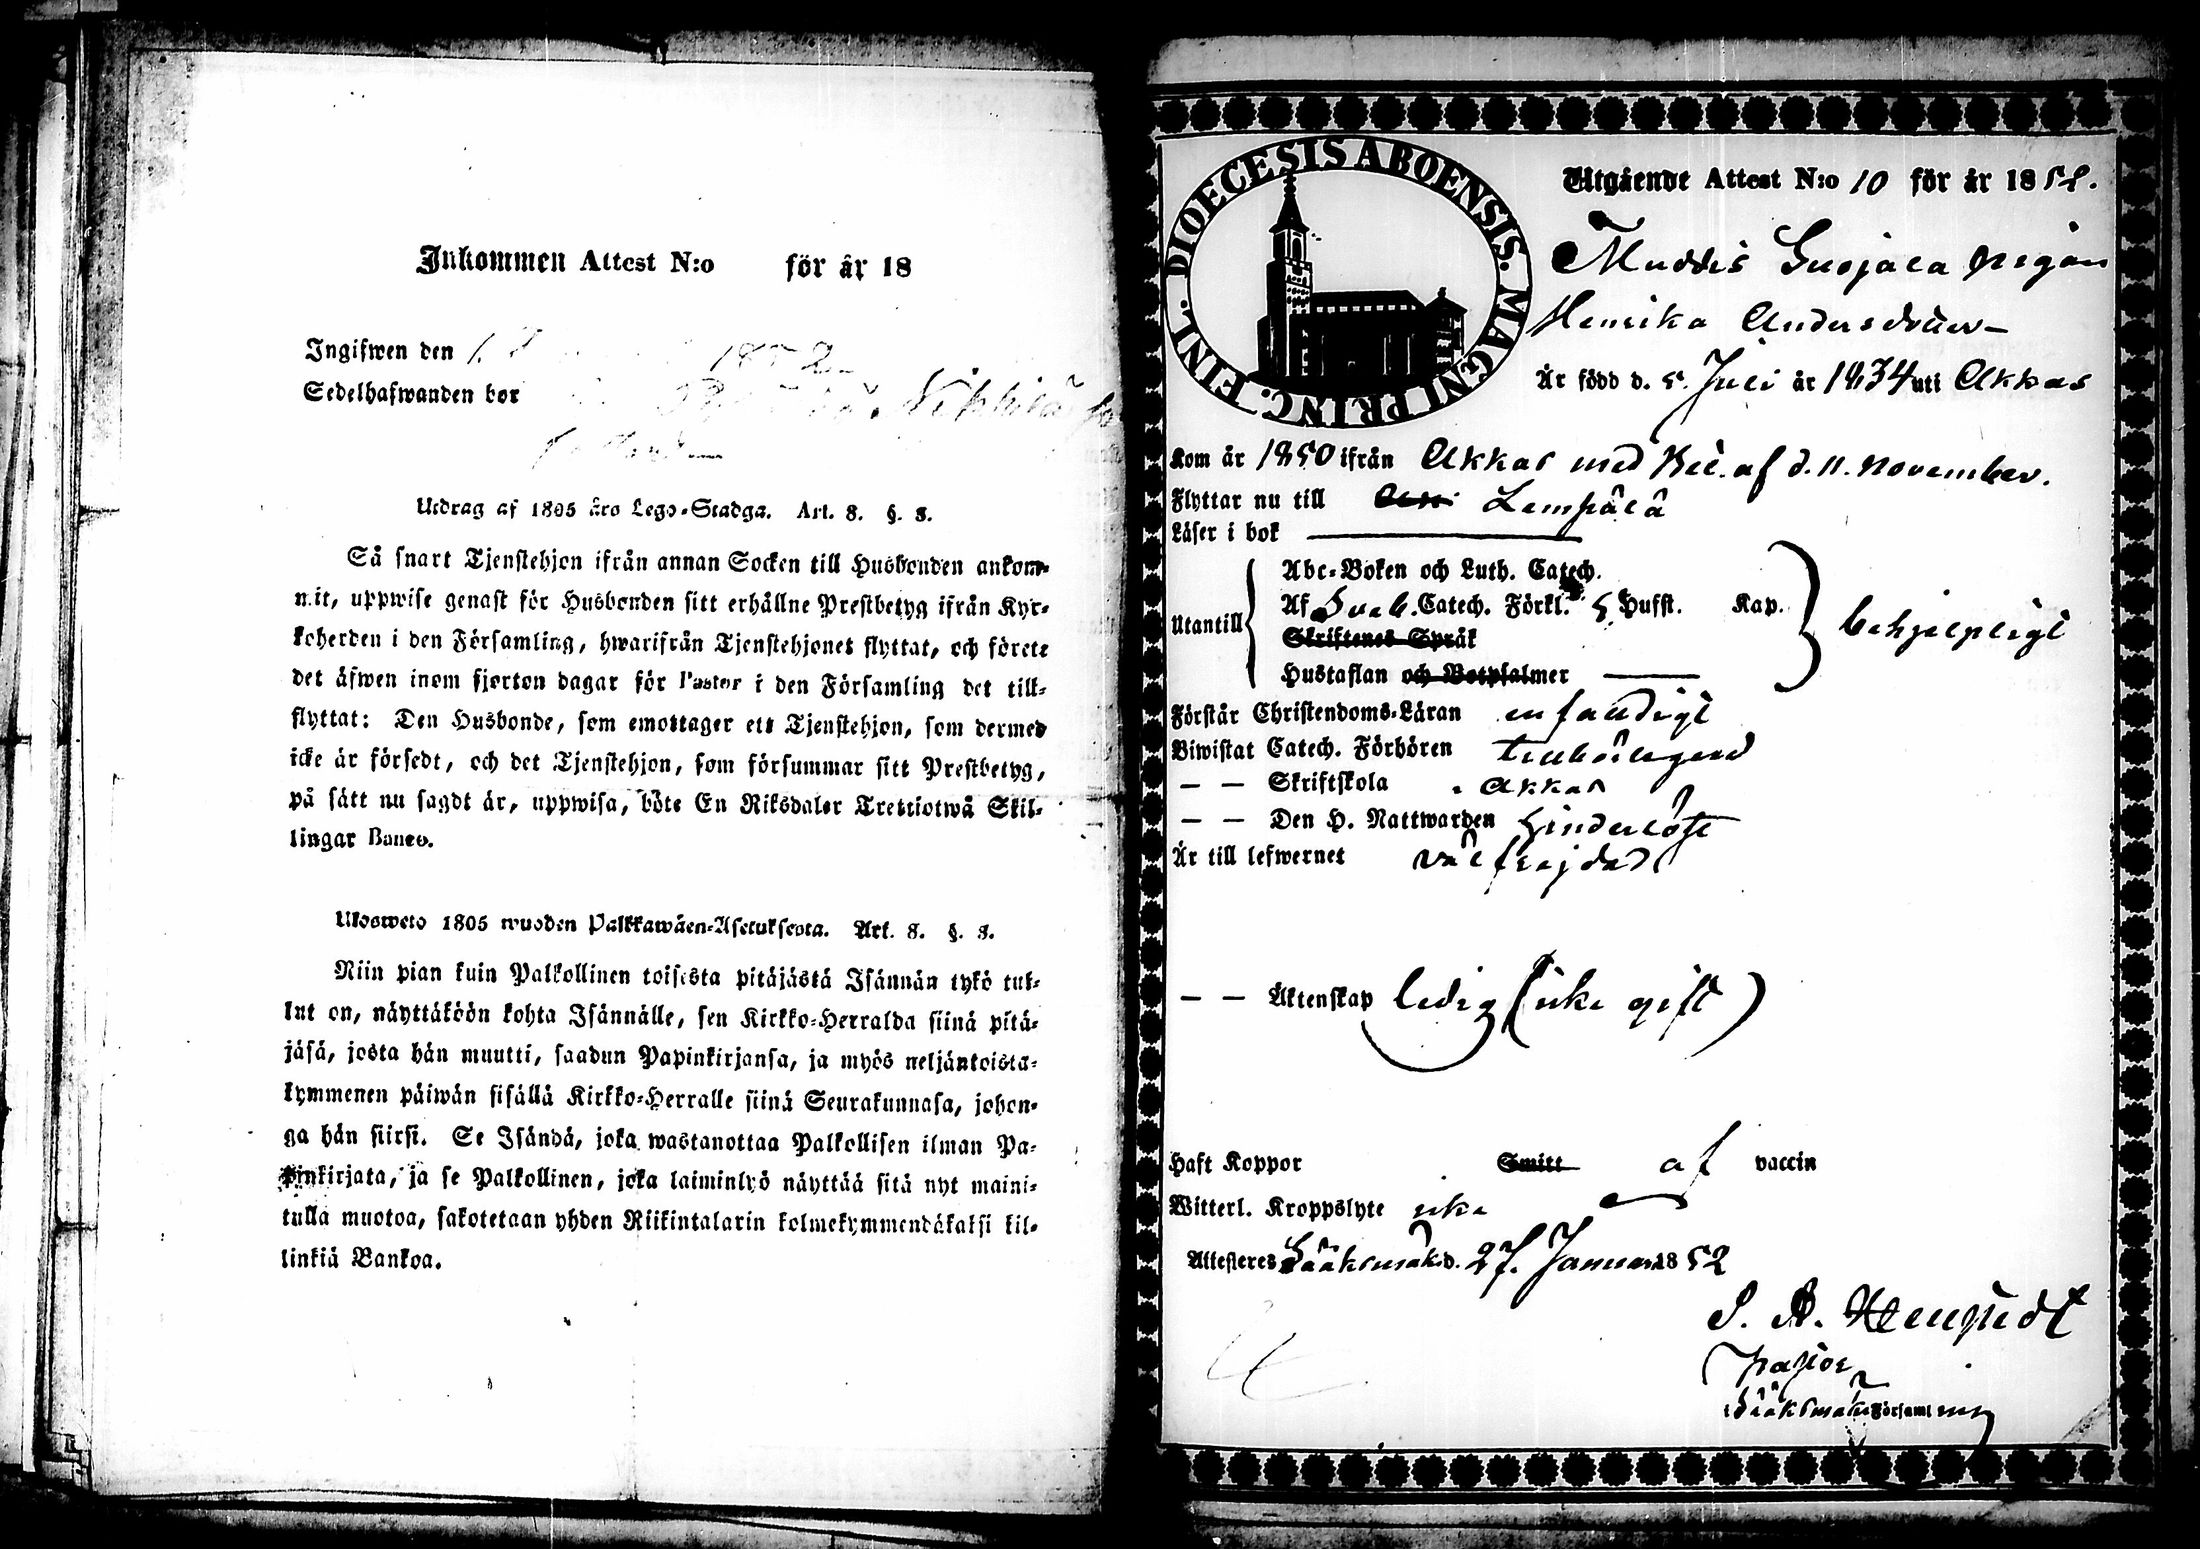 Inkommen Attest N:o för år 18
Ingifwen den 1852
Sedelhafwanden bor Nikkilä
Utdrag af 1805 års Lego-Stadga. Art. 8. §. 3.
Så snart Tjenstehjon ifrån annan Socken till Husbonden ankom-
mit, uppwise genast för Husbonden sitt erhållne Prestbetyg ifrån Kyr-
koherden i den Församling, hwarifrån Tjenstehjonet flyttat, och förete
det äfwen inom fjorton dagar för Pastor i den Församling det till-
flyttat: Den Husbonde, som emottager ett Tjenstehjon, som dermed
icke är försedt, och det Tjenstehjon, som försummar sitt Prestbetyg,
på sätt nu sagdt är, uppwisa, böte En Riksdaler Trettiotwå Skil-
lingar Banco.
Uloswето 1805 wuoden Palkkawäen-Asetuksesta. Art. 8. §. 3.
Niin pian kuin Palkollinen toisesta pitäjästä Isännän tykö tul-
lut on, näyttäköön kohta Isännälle, sen Kirkko-Herralda siinä pitä-
jäsä, josta hän muutti, saadun Papinkirjansa, ja myös neljäntoista-
kymmenen päiwän sisällä Kirkko-Herralle siinä Seurakunnasa, johon-
ga hän siirsi. Se Isändä, joka wastanottaa Palkollisen ilman Pa-
pinkirjata, ja se Palkollinen, joka laiminlyö näyttää sitä nyt maini-
tulla muotoa, sakotetaan yhden Riikintalarin kolmekymmendäkaksi kil-
linkiä Bankoa.
DIOECESIS ABOENSIS. MAGNI PRINC. FINL.
Utgående Attest N:o 10 för år 1852.
Muddis Suojala pigan
Henrika Andersdotter
Är född d. 5. Juli år 1834 uti Akkas
Kom år 1850 ifrån Akkas med Bet. af d. 11. November.
Flyttar nu till Lempälä
Läser i bok
Abc-Boken och Luth. Catech.
Utantill Af Sveb. Catech. Förkl. 5 Hufst. Kap. behjelpligt
Skriftenes Språk
Hustaflan och Botpsalmer
Förstår Christendoms-Läran enfaldigt
Biwistat Catech. Förhören tillbörligend
— — Skriftskola i Akkas
— — Den H. Nattwarden hinderlöst
Är till lefwernet välfrejdad
— — Äktenskap ledig (icke gift)
Haft Koppor Smitt af vaccin
Witterl. Kroppslyte icke
Attesteres Sääksmäki d. 27. Januari 1852
Pastor
Sääksmäki Församling